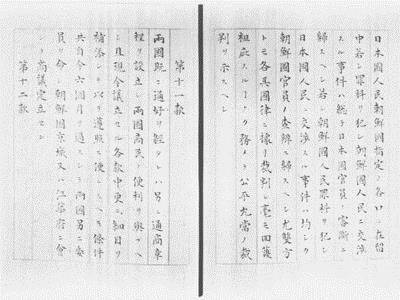 日本國人民朝鮮國指定ノ各口ニ在留
中若シ罪科ヲ犯シ朝鮮國人民ニ交渉
スル事件ハ総テ日本國官員ノ審断ニ
歸スヘシ若シ朝鮮國人民罪科ヲ犯シ
日本國人民ニ交渉スル事件ハ均シク
朝鮮國官員ノ査辦ニ歸スヘシ尤雙方
トモ各其國律ニ據リ裁判シ毫モ回護
袒庇スルヿナク務メテ公平允當ノ裁
判ヲ示スヘシ
第十一款
兩國既ニ通好ヲ經タレハ另ニ通商章
程ヲ設立シ兩國商民ノ便利ヲ與フヘ
シ且現今議立セル各款中更ニ細目ヲ
補添シテ以テ遵照ニ便ニスヘキ條件
共自今六個月ヲ過スシテ兩國另ニ委
員ヲ命シ朝鮮國京城又ハ江華府ニ會
シテ商議定立セン
第十二款